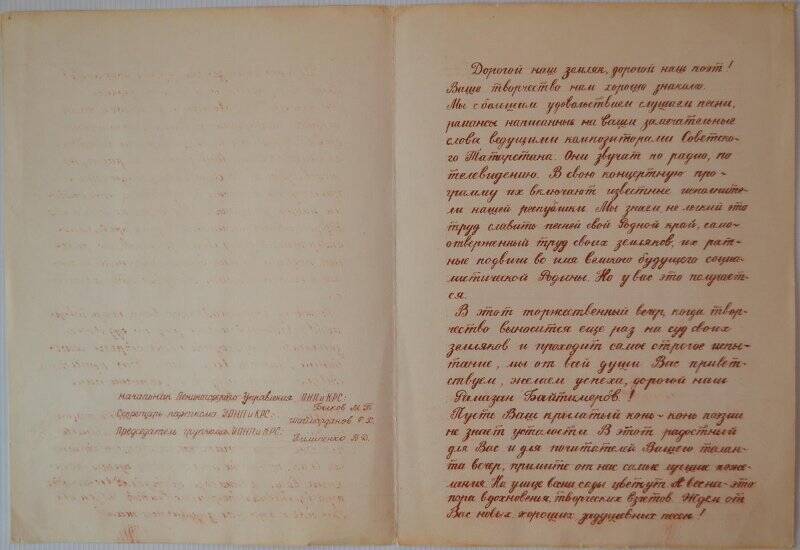 начальник Лениногорского Управления ПНП и КРС:
Быков М.Б
Секретарь парткома УПНП и КРС:
Шаймарданов Г.Х.
Председатель групкома УПНП и КРС:
В.Д.
Дорогой наш земляк, дорогой наш поэт!
Ваше творчество нам хорошо знакомо.
Мы с большим удовольствием слушаем песни,
романсы написанные на ваши замечательные
слова ведущими композиторами Советско-
го Татарстана. Они звучат по радио, по
телевидению. В свою концертную про-
грамму их включают известные исполните-
ли нашей республики. Мы знаем, не легкий это
труд славить песней свой Родной край, само-
отверженный труд своих земляков, их рат-
ные подвиги во имя великого будущего социа-
листической Родины. Но у вас это получает-
ся.
В этот торжественный вечер, когда твор-
чество выносится еще раз на суд своих
земляков и проходит самое строгое испы-
тание, мы от всей души Вас приветс-
твуем, желаем успеха, дорогой наш
Рамазан Байтимеров!
Пусть Ваш крылатый конь-конь поэзии
не знает усталости. В этот радостный
для Вас и для почитателей Вашего талан-
та вечер, примите от нас самые лучшие поже-
лания. На улице весна сады цветут. А весна-это
пора вдохновения, творческих взлетов. Ждем от
Вас новых, хороших задушевных песен!